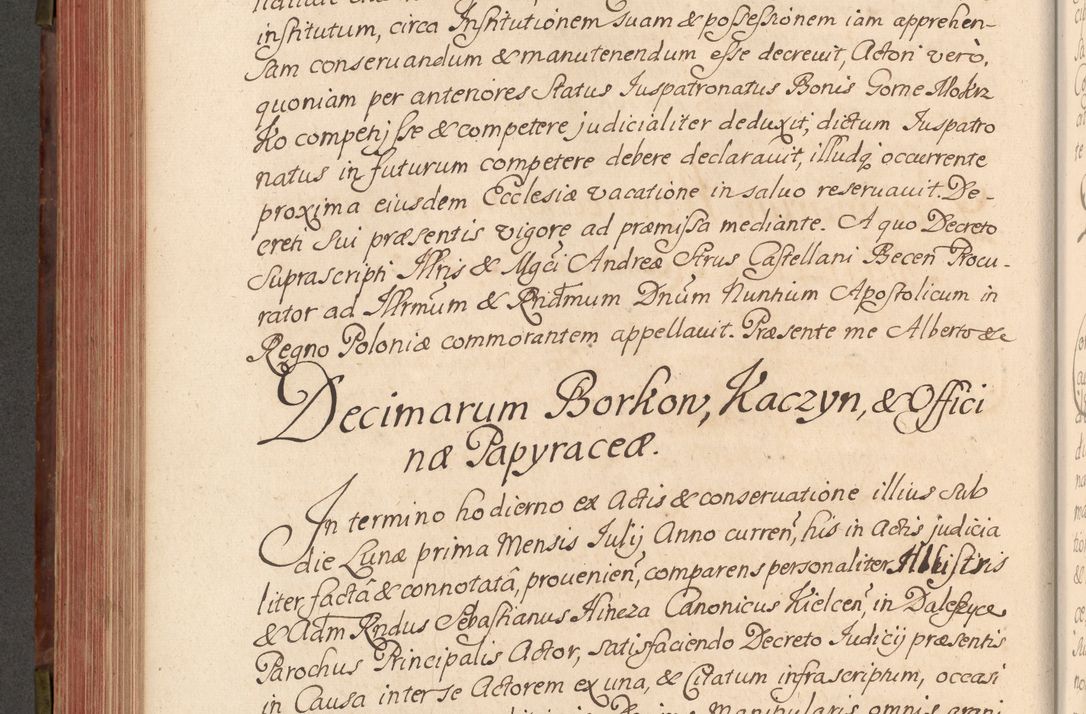 institutum, circa Institutionem suam & possessionem iam apprehen-
sam conseruandum & manutenendum esse decreuit, Actori verò,
quoniam per anteriores Status Iuspatronatus Bonis Gorne Mokrz
ko competijsse & competere judicialiter deduxit, dictum Iuspatro
natus in futurum competere debere declarauit, illudq́ occurrente
proxima eiusdem Ecclesiæ vacatione in saluo reseruauit. De-
creti sui præsentis vigore ad præmissa mediante. A quo Decreto
suprascripti Illris & Mgci Andreæ Strus Castellani Becen̄ Procu-
rator ad Illrmum & Rndmum Dnum Nuntium Apostolicum in
Regno Poloniæ commorantem appellauit. Præsente me Alberto &c
Decimarum Borkow, Kaczyn, & Offici
næ Papyraceæ.
In termino hodierno ex Actis & conseruatione illius sub
die Lunæ prima Mensis Iulij Anno curren̄, his in Actis judicia
liter factâ & connotatâ, prouenien̄, comparens personaliter
& Adm Rndus Sebastianus Hineza Canonicus Kielcen̄, in Daleszyce
Parochus Principalis Actor, satisfaciendo Decreto Iudicij præsentis
in Causa inter se Actorem ex una, & Citatum infrascriptum, occasi
Manipularis omnis grani